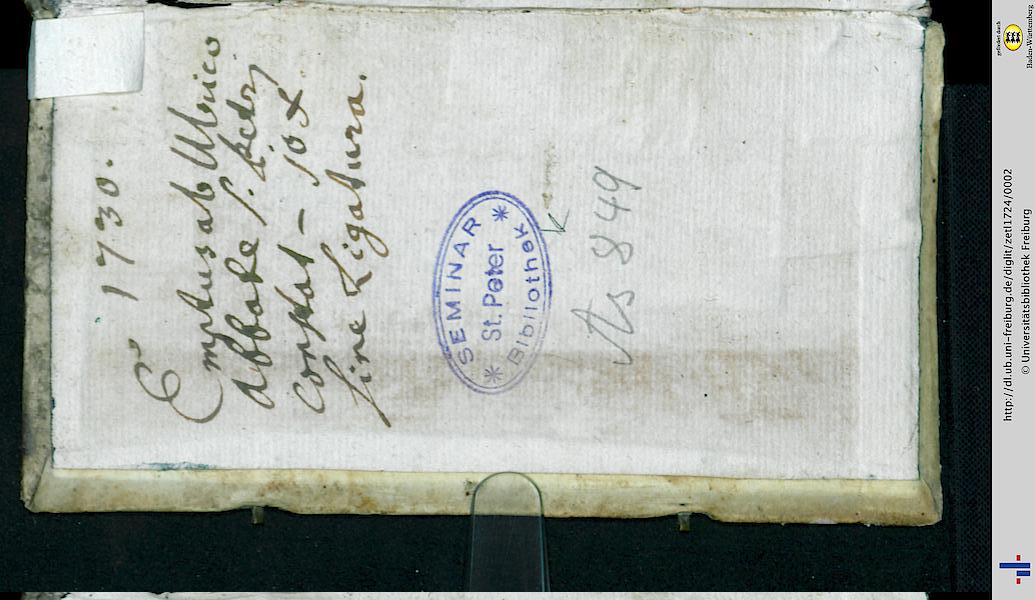 1730.
Emptus ab Ulrico
Abbate S. Petri
constat – 10 x
sine Ligatura.
SEMINAR
St. Peter
Bibliothek
As 849
gefördert durch
Baden-Württemberg
http://dl.ub.uni-freiburg.de/diglit/zetl1724/0002
© Universitätsbibliothek Freiburg